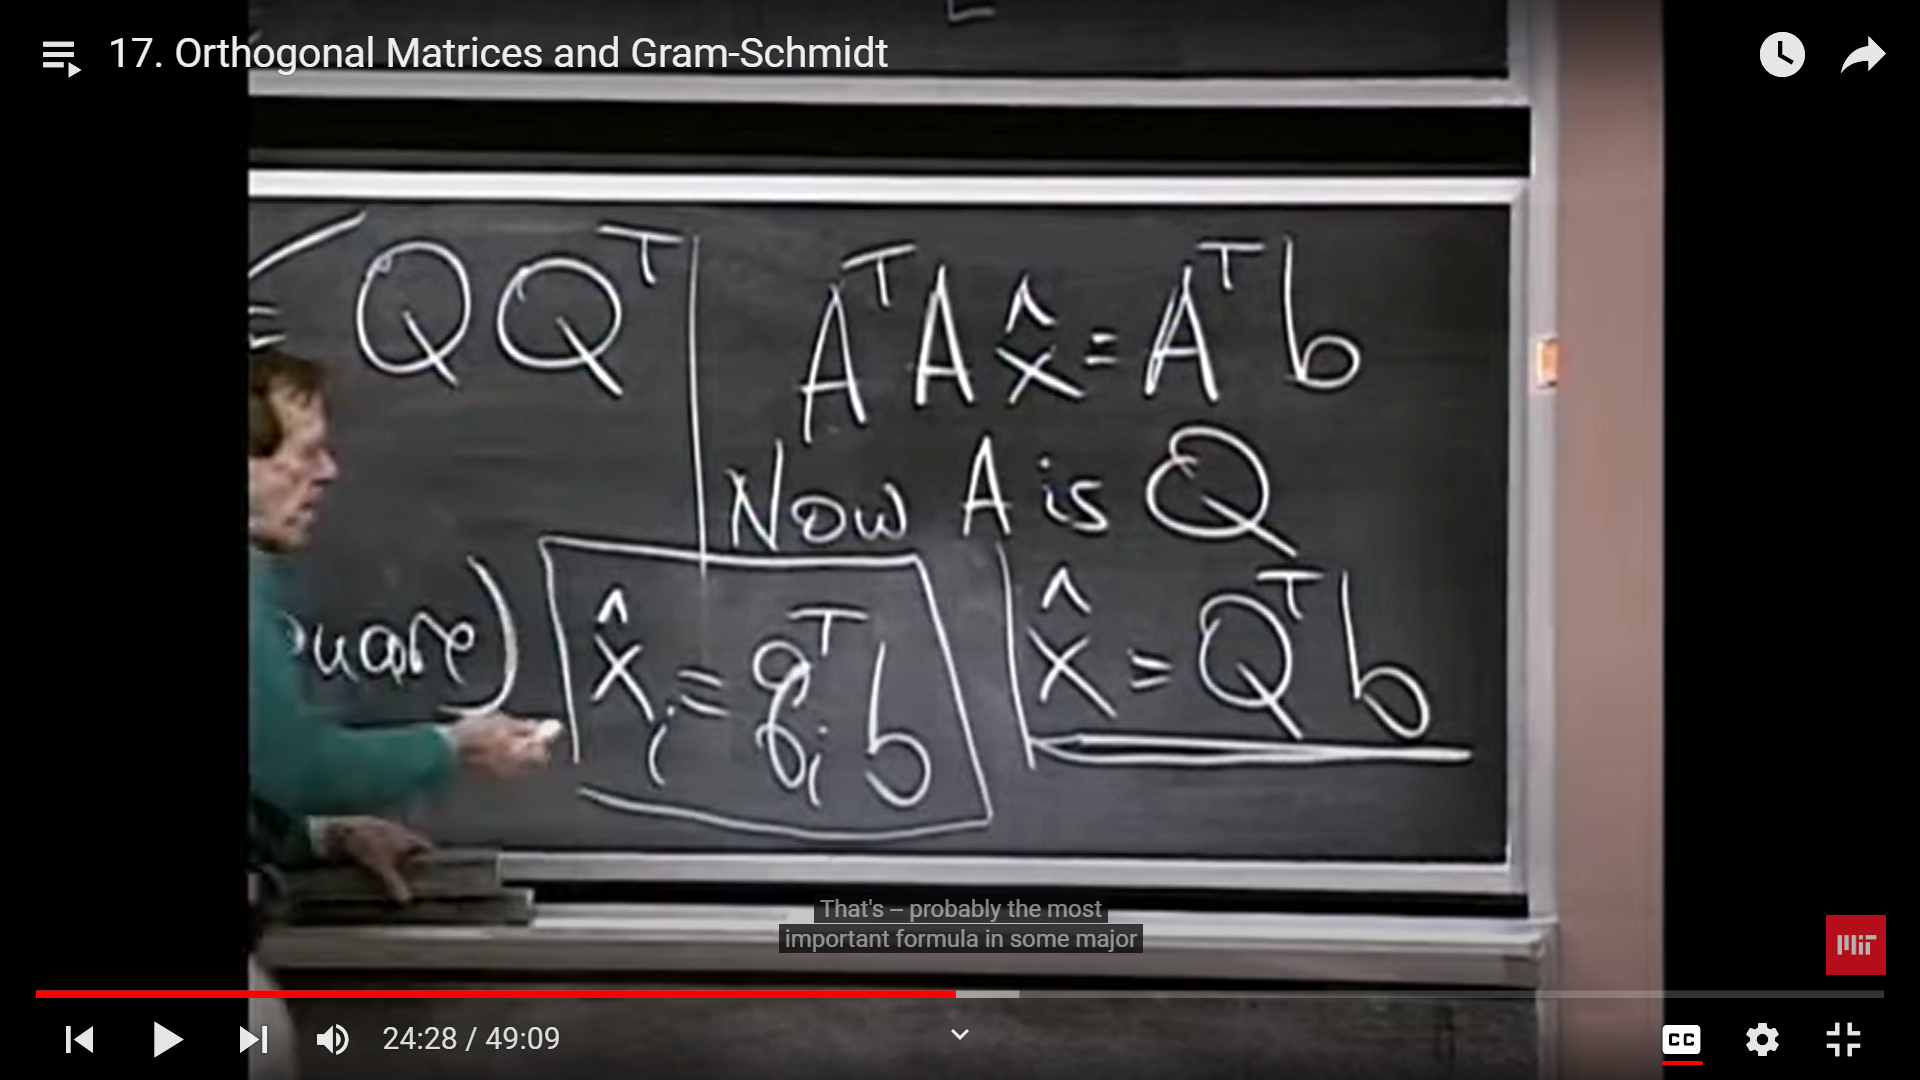 17. Orthogonal Matrices and Gram-Schmidt
= QQᵀ
AᵀA x̂ = Aᵀb
Now A is Q
x̂ᵢ = qᵢᵀb
x̂ = Qᵀb
That's – probably the most
important formula in some major
MIT
24:28 / 49:09
CC